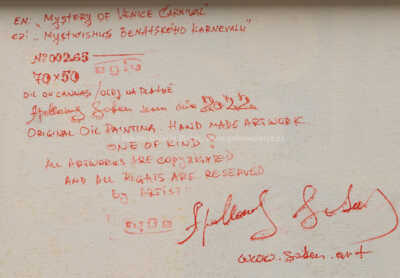 EN: "MYSTERY OF VENICE CARNIVAL"
CZ: "MYSTICISMUS BENÁTSKÉHO KARNEVALU"
Nº 00265
70 x 50
OIL ON CANVAS / OLEJ NA PLÁTNĚ
2022
ORIGINAL OIL PAINTING. HAND MADE ARTWORK
ONE OF KIND!
ALL ARTWORKS ARE COPYRIGHTED
AND ALL RIGHTS ARE RESERVED
by ARTIST!